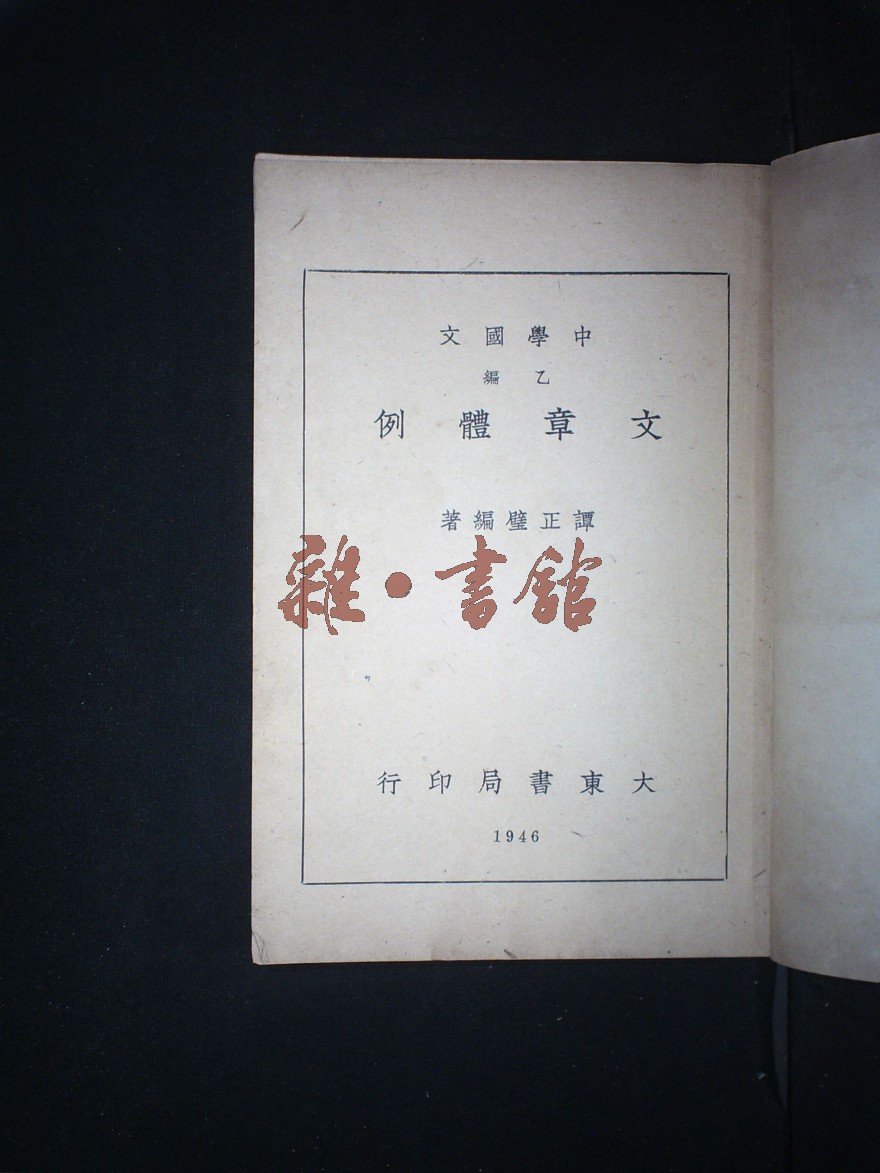 中學國文
乙編
文章體例
譚正璧編著
雜·書館
大東書局印行
1946